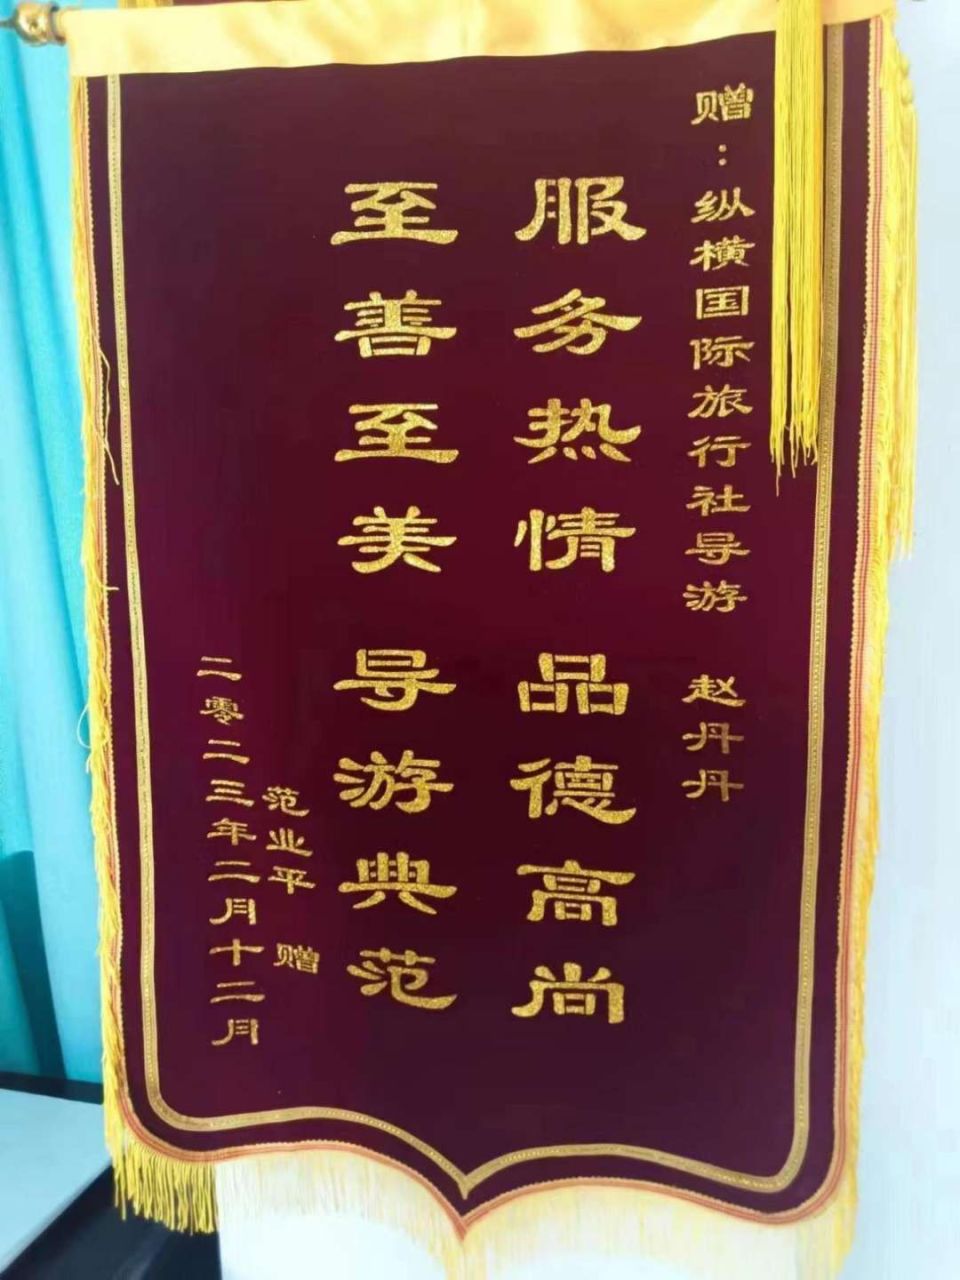 赠：纵横国际旅行社导游 赵丹丹
服务热情 品德高尚
至善至美 导游典范
范业平 赠
二零二三年二月十二月